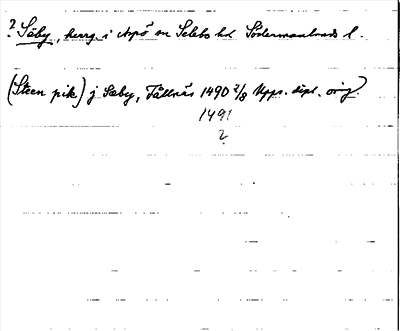 ? Säby, herrg. i Aspö sn Selebo hd Södermanlands l.
(Steen pik) j Sæby, Tällnäs 1490 2/8 Upps. dipl. orig.
1491
?